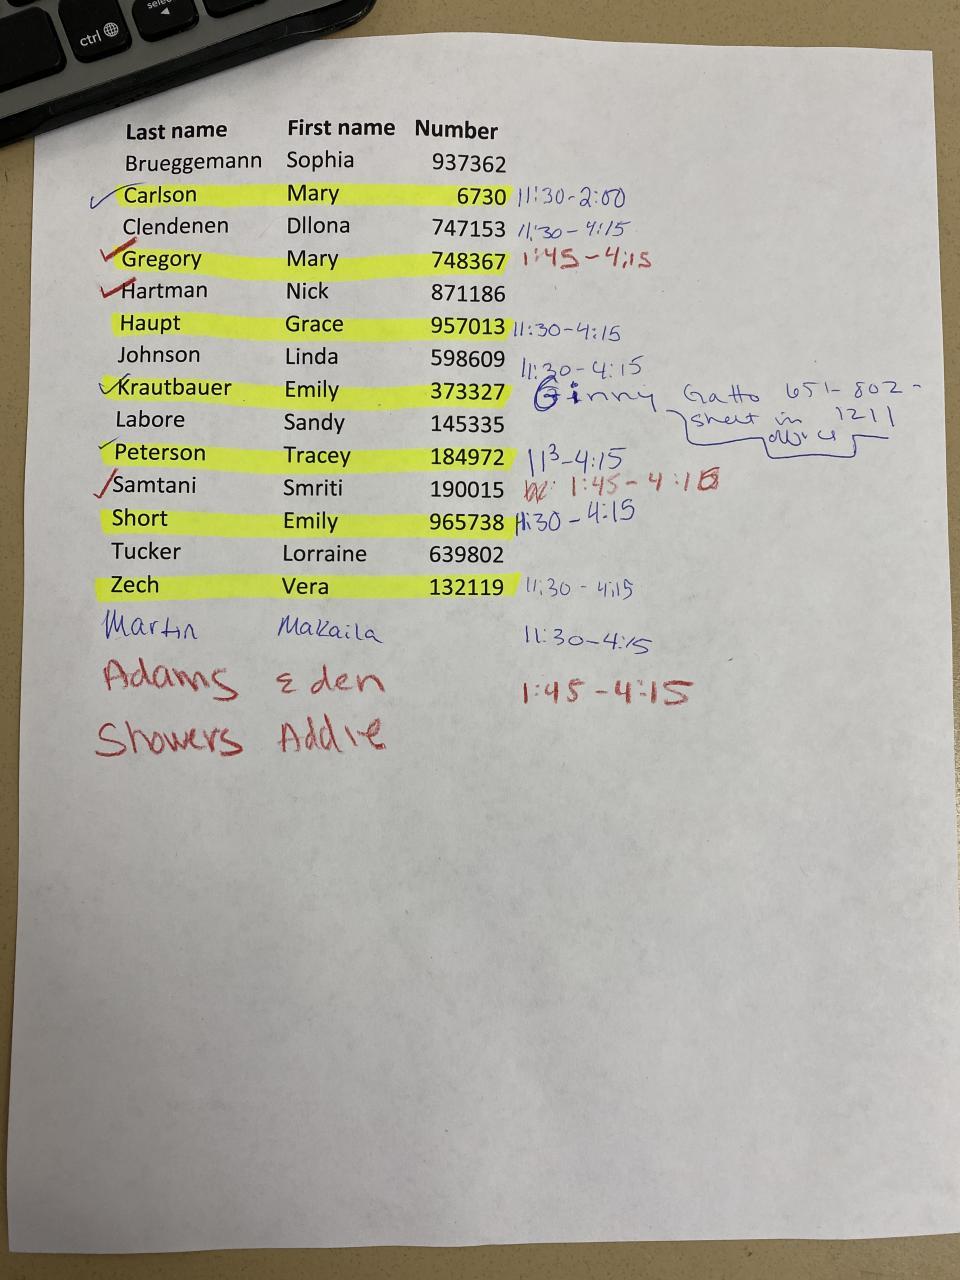 ctrl
select
Last name First name Number
Brueggemann Sophia 937362
Carlson Mary 6730 11:30-2:00
Clendenen Dllona 747153 11:30-4:15
Gregory Mary 748367 1:45-4:15
Hartman Nick 871186
Haupt Grace 957013 11:30-4:15
Johnson Linda 598609 11:30-4:15
Krautbauer Emily 373327 Ginny Gatto 651-802-
1211
sheet in
office
Labore Sandy 145335
Peterson Tracey 184972 11³-4:15
Samtani Smriti 190015 1:45-4:15
Short Emily 965738 11:30-4:15
Tucker Lorraine 639802
Zech Vera 132119 11:30-4:15
Martin Makaila 11:30-4:15
Adams Eden 1:45-4:15
Showers Addie